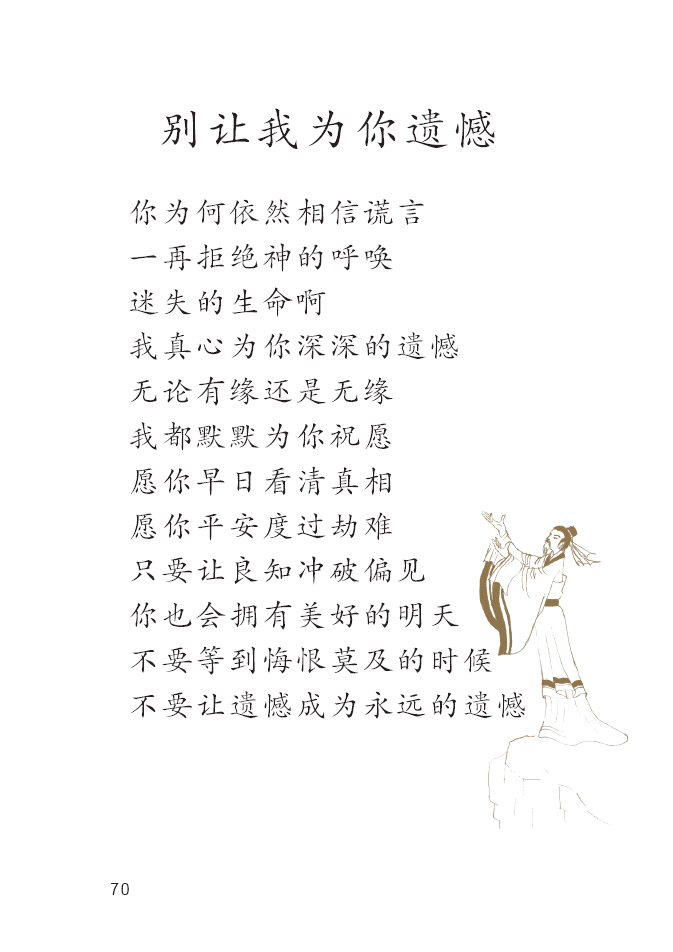 别让我为你遗憾
你为何依然相信谎言
一再拒绝神的呼唤
迷失的生命啊
我真心为你深深的遗憾
无论有缘还是无缘
我都默默为你祝愿
愿你早日看清真相
愿你平安度过劫难
只要让良知冲破偏见
你也会拥有美好的明天
不要等到悔恨莫及的时候
不要让遗憾成为永远的遗憾
70